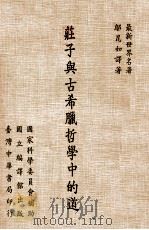 最新世界名著
鄔昆如譯著
莊子與古希臘哲學中的道
國家科學委員會補助
國立編譯館出版
臺灣中華書局印行